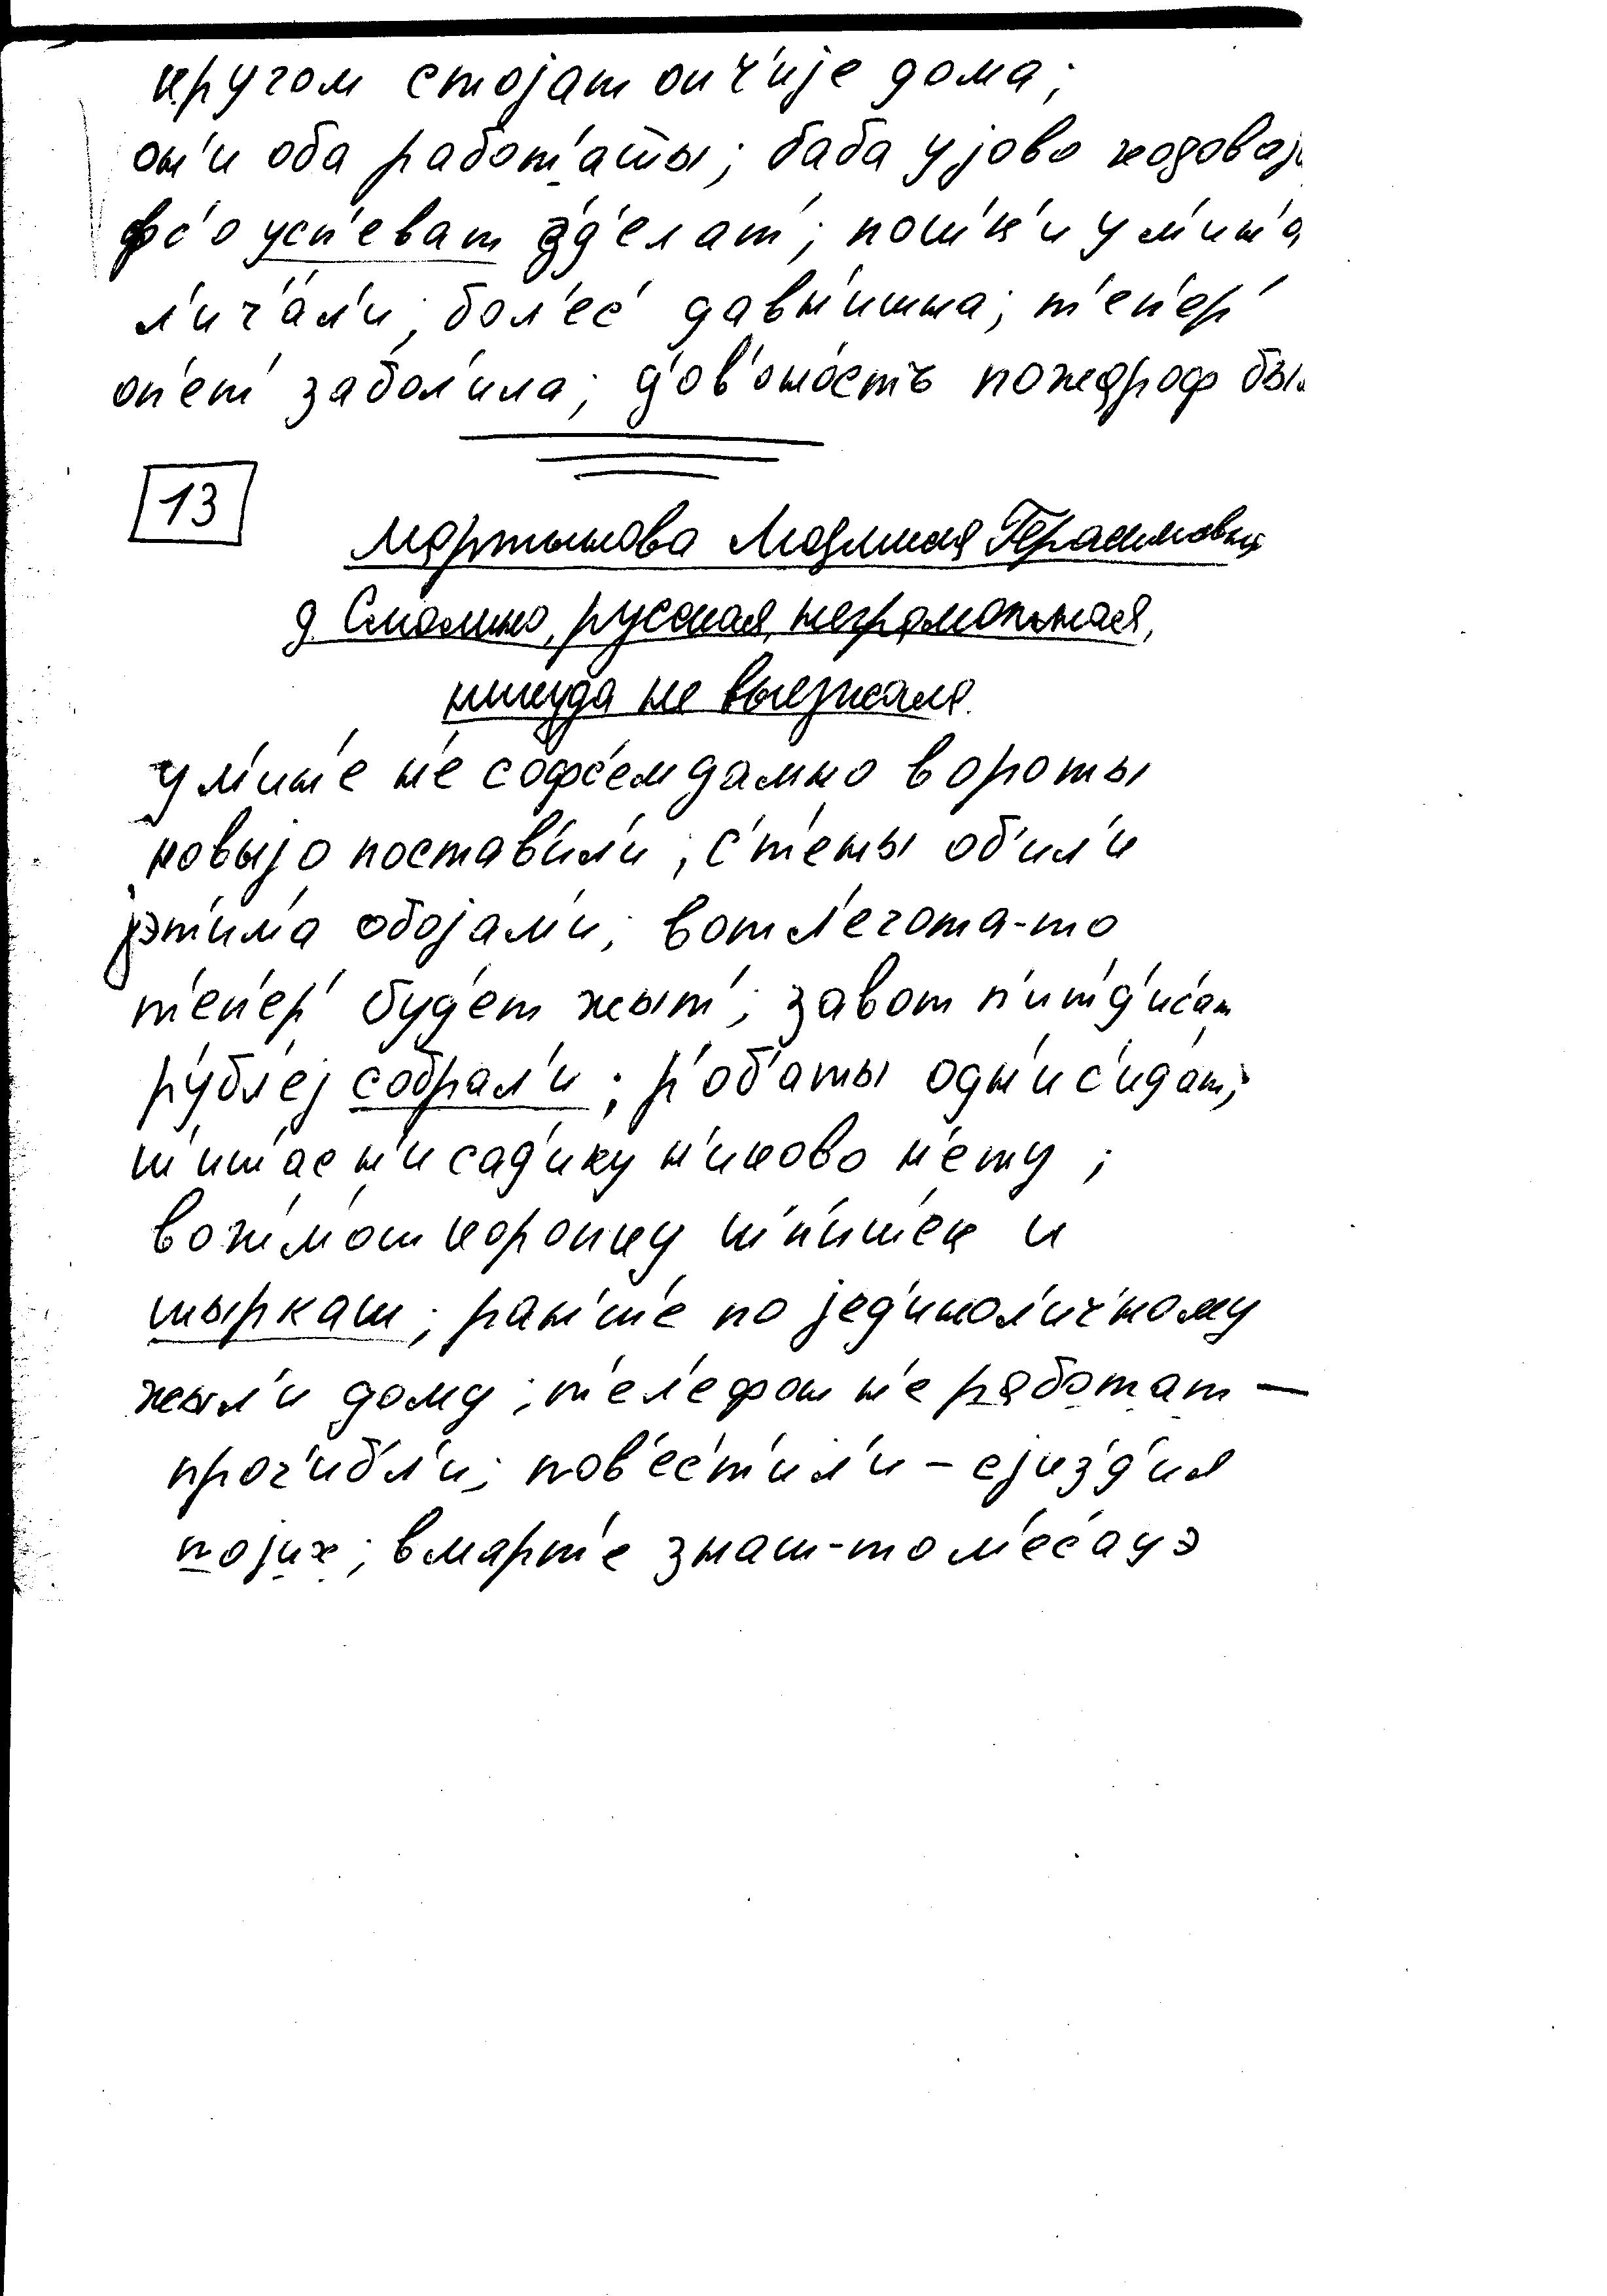 кругом стојат оич'ијe дома;
он'и оба работ'аты; баба ујово ходовај
фс'о усп'еват зд'елат'; пош'к'и у м'ин'а
л'ич'ал'и; бол'ес' давн'ишна; т'еп'ер'
оп'ет' забол'ила; д'ев'оност'ъ пожедроф бы
13
Мартынова Людмила Герасимовна
д. Смолино, русская, неграмотная,
никуда не выезжала.
у м'ин'е н'е софс'ем дамно вороты
новыјо постав'ил'и; с'т'ены об'ил'и
јэт'им'а обојам'и; вот л'егота-то
т'еп'ер' буд'ет жыт'; завот п'ит'д'ис'ат
рубл'еј собрал'и; р'об'аты одн'и с'ид'ат;
ш'иш'ас н'и сад'ику н'иково н'ету;
вож'м'от коропку ш'п'иш'ек и
шыркат; ран'ш'е по јед'инол'ич'ному
жыл'и дому; т'ел'ефон н'е работат —
прог'ибл'и; пов'ес'т'ил'и – сјизд'ил
појих; в март'е знаш-то м'ес'ацэ